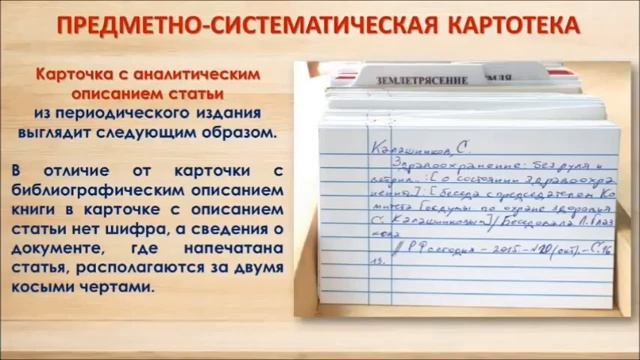 ПРЕДМЕТНО-СИСТЕМАТИЧЕСКАЯ КАРТОТЕКА
Карточка с аналитическим
описанием статьи
из периодического издания
выглядит следующим образом.
В отличие от карточки с
библиографическим описанием
книги в карточке с описанием
статьи нет шифра, а сведения о
документе, где напечатана
статья, располагаются за двумя
косыми чертами.
ЗЕМЛЕТРЯСЕНИЕ
ЕМЛЯ
Калашников, С.
Здравоохранение: Без руля и
ветрил... : [о состоянии здравоохра
нения] : [беседа с председателем Ко
митета Госдумы по охране здоровья
С. Калашниковым] / Беседовала Л. Глаз
кова
// РФ сегодня - 2015 - №20 (окт). - С. 16